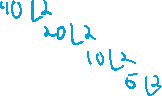 40 2
20 2
10 2
5 2